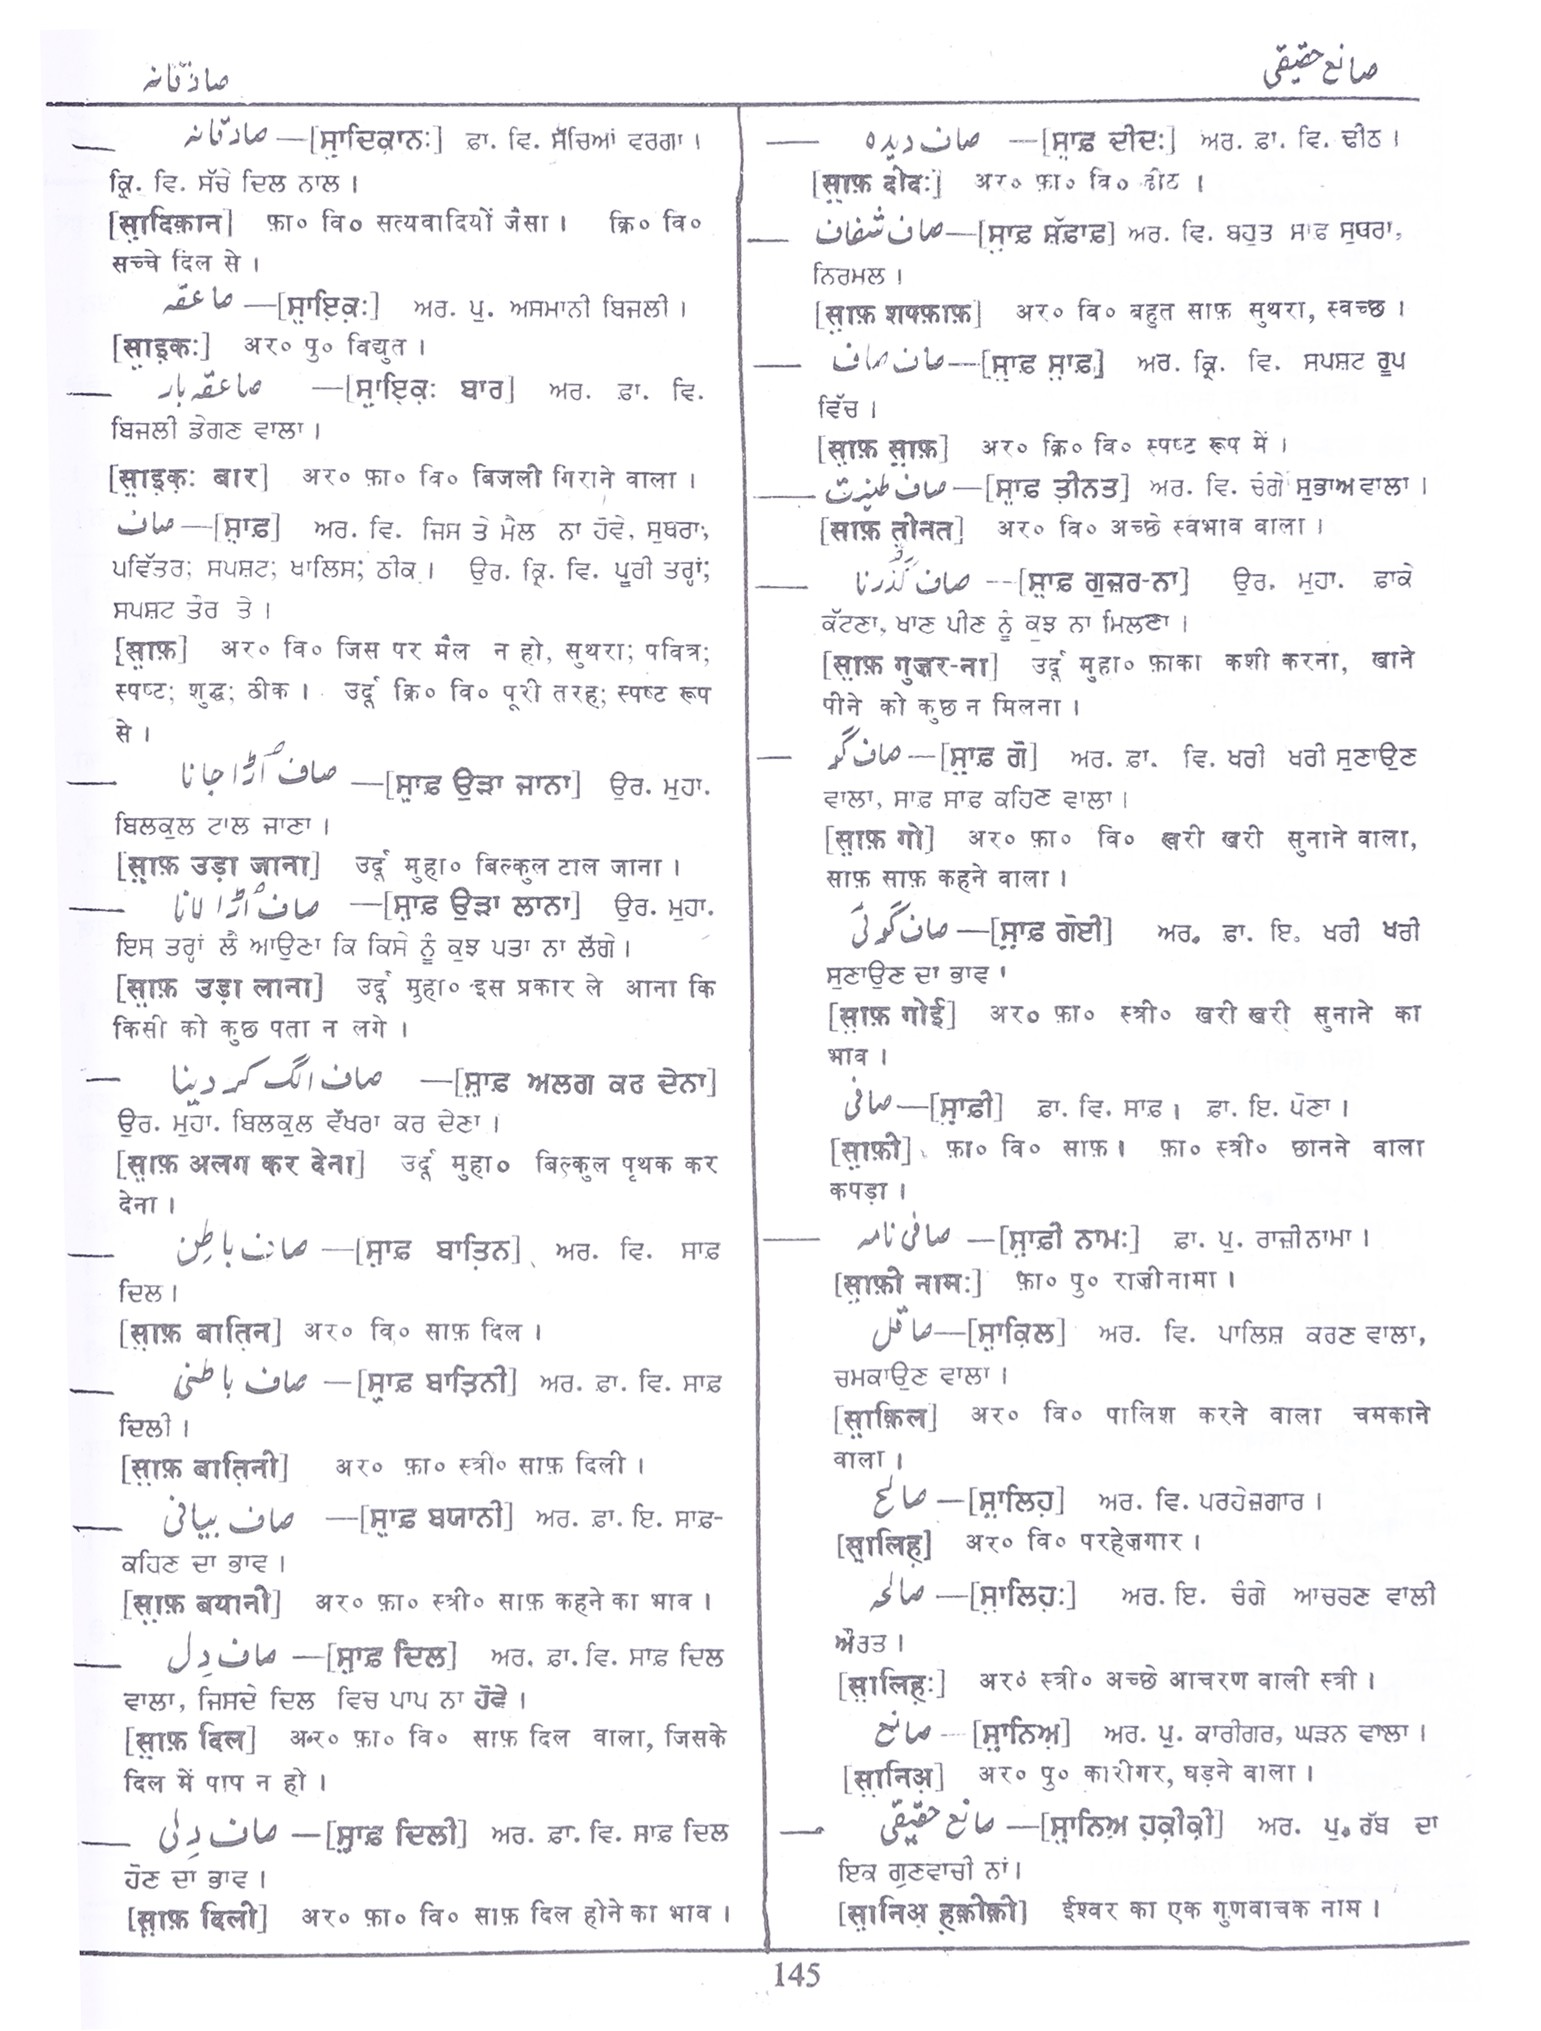 صادقانہ
صانع حقیقی
صادقانہ —[ਸ਼ਾਦਿਕ਼ਾਨ:] ਫ਼ਾ. ਵਿ. ਸੱਚਿਆਂ ਵਰਗਾ।
ਕ੍ਰਿ. ਵਿ. ਸੱਚੇ ਦਿਲ ਨਾਲ।
[सा़दिक़ान] फ़ा० वि० सत्यवादियों जैसा। क्रि० वि०
सच्चे दिल से।
صاعقہ —[ਸ਼ਾਇਕ਼:] ਅਰ. ਪੁ. ਅਸਮਾਨੀ ਬਿਜਲੀ।
[सा़इक़:] अर० पु० विद्युत।
— صاعقہ بار —[ਸ਼ਾਇਕ਼: ਬਾਰ] ਅਰ. ਫ਼ਾ. ਵਿ.
ਬਿਜਲੀ ਡੇਗਣ ਵਾਲਾ।
[सा़इक़: बार] अर० फ़ा० वि० बिजली गिराने वाला।
صاف —[ਸ਼ਾਫ਼] ਅਰ. ਵਿ. ਜਿਸ ਤੇ ਮੈਲ ਨਾ ਹੋਵੇ, ਸੁਥਰਾ;
ਪਵਿੱਤਰ; ਸਪਸ਼ਟ; ਖਾਲਿਸ; ਠੀਕ। ਉਰ. ਕ੍ਰਿ. ਵਿ. ਪੂਰੀ ਤਰ੍ਹਾਂ;
ਸਪਸ਼ਟ ਤੌਰ ਤੇ।
[सा़फ़] अर० वि० जिस पर मैल न हो, सुथरा; पवित्र;
स्पष्ट; शुद्ध; ठीक। उर्दू क्रि० वि० पूरी तरह; स्पष्ट रूप
से।
— صاف اُڑا جانا —[ਸ਼ਾਫ਼ ਉੜਾ ਜਾਨਾ] ਉਰ. ਮੁਹਾ.
ਬਿਲਕੁਲ ਟਾਲ ਜਾਣਾ।
[सा़फ़ उड़ा जाना] उर्दू मुहा० बिल्कुल टाल जाना।
— صاف اُڑا لانا —[ਸ਼ਾਫ਼ ਉੜਾ ਲਾਨਾ] ਉਰ. ਮੁਹਾ.
ਇਸ ਤਰ੍ਹਾਂ ਲੈ ਆਉਣਾ ਕਿ ਕਿਸੇ ਨੂੰ ਕੁਝ ਪਤਾ ਨਾ ਲੱਗੇ।
[सा़फ़ उड़ा लाना] उर्दू मुहा० इस प्रकार ले आना कि
किसी को कुछ पता न लगे।
— صاف الگ کر دینا —[ਸ਼ਾਫ਼ ਅਲਗ ਕਰ ਦੇਨਾ]
ਉਰ. ਮੁਹਾ. ਬਿਲਕੁਲ ਵੱਖਰਾ ਕਰ ਦੇਣਾ।
[सा़फ़ अलग कर देना] उर्दू मुहा० बिल्कुल पृथक कर
देना।
— صاف باطِن —[ਸ਼ਾਫ਼ ਬਾਤ਼ਿਨ] ਅਰ. ਵਿ. ਸਾਫ਼
ਦਿਲ।
[सा़फ़ बाति़न] अर० वि० साफ़ दिल।
— صاف باطنی —[ਸ਼ਾਫ਼ ਬਾਤ਼ਿਨੀ] ਅਰ. ਫ਼ਾ. ਵਿ. ਸਾਫ਼
ਦਿਲੀ।
[सा़फ़ बाति़नी] अर० फ़ा० स्त्री० साफ़ दिली।
— صاف بیانی —[ਸ਼ਾਫ਼ ਬਯਾਨੀ] ਅਰ. ਫ਼ਾ. ਇ. ਸਾਫ਼-
ਕਹਿਣ ਦਾ ਭਾਵ।
[सा़फ़ बयानी] अर० फ़ा० स्त्री० साफ़ कहने का भाव।
— صاف دِل —[ਸ਼ਾਫ਼ ਦਿਲ] ਅਰ. ਫ਼ਾ. ਵਿ. ਸਾਫ਼ ਦਿਲ
ਵਾਲਾ, ਜਿਸਦੇ ਦਿਲ ਵਿਚ ਪਾਪ ਨਾ ਹੋਵੇ।
[सा़फ़ दिल] अर० फ़ा० वि० साफ़ दिल वाला, जिसके
दिल में पाप न हो।
— صاف دِلی —[ਸ਼ਾਫ਼ ਦਿਲੀ] ਅਰ. ਫ਼ਾ. ਵਿ. ਸਾਫ਼ ਦਿਲ
ਹੋਣ ਦਾ ਭਾਵ।
[सा़फ़ दिली] अर० फ़ा० वि० साफ़ दिल होने का भाव।
— صاف دیدہ —[ਸ਼ਾਫ਼ ਦੀਦ:] ਅਰ. ਫ਼ਾ. ਵਿ. ਢੀਠ।
[सा़फ़ दीद:] अर० फ़ा० वि० ढीठ।
— صاف شفّاف —[ਸ਼ਾਫ਼ ਸ਼ੱਫ਼ਾਫ਼] ਅਰ. ਵਿ. ਬਹੁਤ ਸਾਫ਼ ਸੁਥਰਾ,
ਨਿਰਮਲ।
[सा़फ़ शफ्फ़ाफ़] अर० वि० बहुत साफ़ सुथरा, स्वच्छ।
— صاف صاف —[ਸ਼ਾਫ਼ ਸ਼ਾਫ਼] ਅਰ. ਕ੍ਰਿ. ਵਿ. ਸਪਸ਼ਟ ਰੂਪ
ਵਿੱਚ।
[सा़फ़ सा़फ़] अर० क्रि० वि० स्पष्ट रूप में।
— صاف طینت —[ਸ਼ਾਫ਼ ਤ਼ੀਨਤ] ਅਰ. ਵਿ. ਚੰਗੇ ਸੁਭਾਅ ਵਾਲਾ।
[सा़फ़ ती़नत] अर० वि० अच्छे स्वभाव वाला।
— صاف گُذرنا --[ਸ਼ਾਫ਼ ਗੁਜ਼ਰ-ਨਾ] ਉਰ. ਮੁਹਾ. ਫ਼ਾਕੇ
ਕੱਟਣਾ, ਖਾਣ ਪੀਣ ਨੂੰ ਕੁਝ ਨਾ ਮਿਲਣਾ।
[सा़फ़ गुज़र-ना] उर्दू मुहा० फ़ाका कशी करना, खाने
पीने को कुछ न मिलना।
— صاف گو —[ਸ਼ਾਫ਼ ਗੋ] ਅਰ. ਫ਼ਾ. ਵਿ. ਖਰੀ ਖਰੀ ਸੁਣਾਉਣ
ਵਾਲਾ, ਸਾਫ਼ ਸਾਫ਼ ਕਹਿਣ ਵਾਲਾ।
[सा़फ़ गो] अर० फ़ा० वि० खरी खरी सुनाने वाला,
साफ़ साफ़ कहने वाला।
صاف گوئی —[ਸ਼ਾਫ਼ ਗੋਈ] ਅਰ. ਫ਼ਾ. ਇ. ਖਰੀ ਖਰੀ
ਸੁਣਾਉਣ ਦਾ ਭਾਵ।
[सा़फ़ गोई] अर० फ़ा० स्त्री० खरी खरी सुनाने का
भाव।
صافی —[ਸ਼ਾਫ਼ੀ] ਫ਼ਾ. ਵਿ. ਸਾਫ਼। ਫ਼ਾ. ਇ. ਪੋਣਾ।
[सा़फ़ी] फ़ा० वि० साफ़। फ़ा० स्त्री० छानने वाला
कपड़ा।
— صافی نامہ —[ਸ਼ਾਫ਼ੀ ਨਾਮ:] ਫ਼ਾ. ਪੁ. ਰਾਜ਼ੀਨਾਮਾ।
[सा़फ़ी नाम:] फ़ा० पु० राज़ीनामा।
صاقل —[ਸ਼ਾਕ਼ਿਲ] ਅਰ. ਵਿ. ਪਾਲਿਸ਼ ਕਰਣ ਵਾਲਾ,
ਚਮਕਾਉਣ ਵਾਲਾ।
[सा़क़िल] अर० वि० पालिश करने वाला चमकाने
वाला।
صالح —[ਸ਼ਾਲਿਹ਼] ਅਰ. ਵਿ. ਪਰਹੇਜ਼ਗਾਰ।
[सा़लिह़] अर० वि० परहेज़गार।
صالحہ —[ਸ਼ਾਲਿਹ਼:] ਅਰ. ਇ. ਚੰਗੇ ਆਚਰਣ ਵਾਲੀ
ਔਰਤ।
[सा़लिह़:] अर० स्त्री० अच्छे आचरण वाली स्त्री।
صانع —[ਸ਼ਾਨਿਅ਼] ਅਰ. ਪੁ. ਕਾਰੀਗਰ, ਘੜਨ ਵਾਲਾ।
[सा़निअ़] अर० पु० कारीगर, घड़ने वाला।
— صانع حقیقی —[ਸ਼ਾਨਿਅ਼ ਹ਼ਕ਼ੀਕ਼ੀ] ਅਰ. ਪੁ. ਰੱਬ ਦਾ
ਇਕ ਗੁਣਵਾਚੀ ਨਾਂ।
[सा़निअ़ ह़क़ीक़ी] ईश्वर का एक गुणवाचक नाम।
145